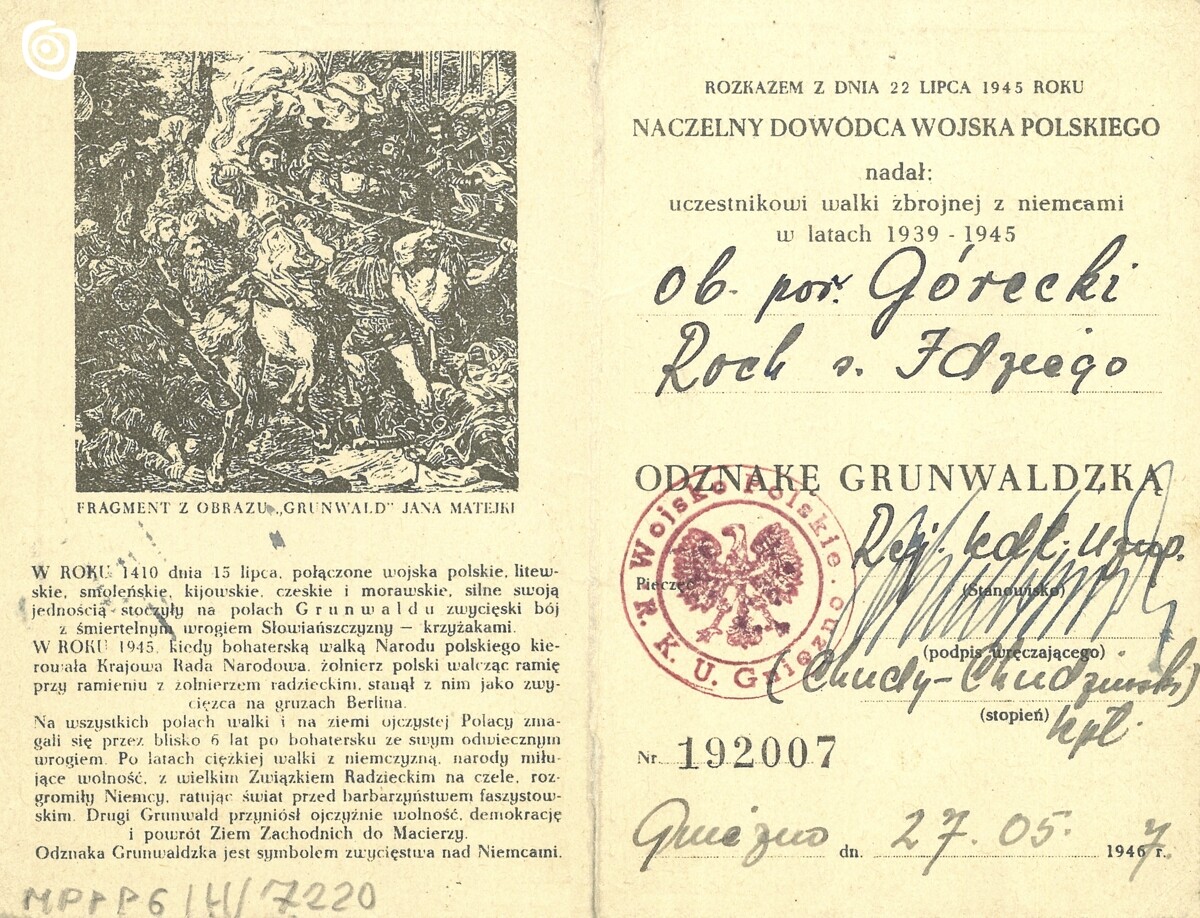 FRAGMENT Z OBRAZU „GRUNWALD" JANA MATEJKI
W ROKU 1410 dnia 15 lipca, połączone wojska polskie, litew-
skie, smoleńskie, kijowskie, czeskie i morawskie, silne swoją
jednością stoczyły na polach Grunwaldu zwycięski bój
z śmiertelnym wrogiem Słowiańszczyzny — krzyżakami.
W ROKU 1945, kiedy bohaterską walką Narodu polskiego kie-
rowała Krajowa Rada Narodowa, żołnierz polski walcząc ramię
przy ramieniu z żołnierzem radzieckim, stanął z nim jako zwy-
cięzca na gruzach Berlina.
Na wszystkich polach walki i na ziemi ojczystej Polacy zma-
gali się przez blisko 6 lat po bohatersku ze swym odwiecznym
wrogiem. Po latach ciężkiej walki z niemczyzną, narody miłu-
jące wolność, z wielkim Związkiem Radzieckim na czele, roz-
gromiły Niemcy, ratując świat przed barbarzyństwem faszystow-
skim. Drugi Grunwald przyniósł ojczyźnie wolność, demokrację
i powrót Ziem Zachodnich do Macierzy.
Odznaka Grunwaldzka jest symbolem zwycięstwa nad Niemcami.
MPPP6/H/7220
ROZKAZEM Z DNIA 22 LIPCA 1945 ROKU
NACZELNY DOWÓDCA WOJSKA POLSKIEGO
nadał:
uczestnikowi walki zbrojnej z niemcami
w latach 1939 - 1945
ob. por. Górecki
Roch s. Idziego
ODZNAKĘ GRUNWALDZKĄ
Wojsko Polskie.
R. K. U. Gniezno
Pieczęć
Rej. kdt. Uzup.
(Stanowisko)
(podpis wręczającego)
(Chudy-Chudziński)
(stopień) kpt.
Nr. 192007
Gniezno dn. 27. 05. 1947 r.